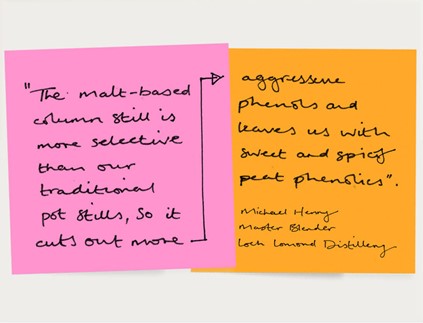 "The malt-based
column still is
more selective
than our
traditional
pot stills, so it
cuts out more
aggressive
phenols and
leaves us with
sweet and spicy
peat phenolics".
Michael Henry
Master Blender
Loch Lomond Distillery